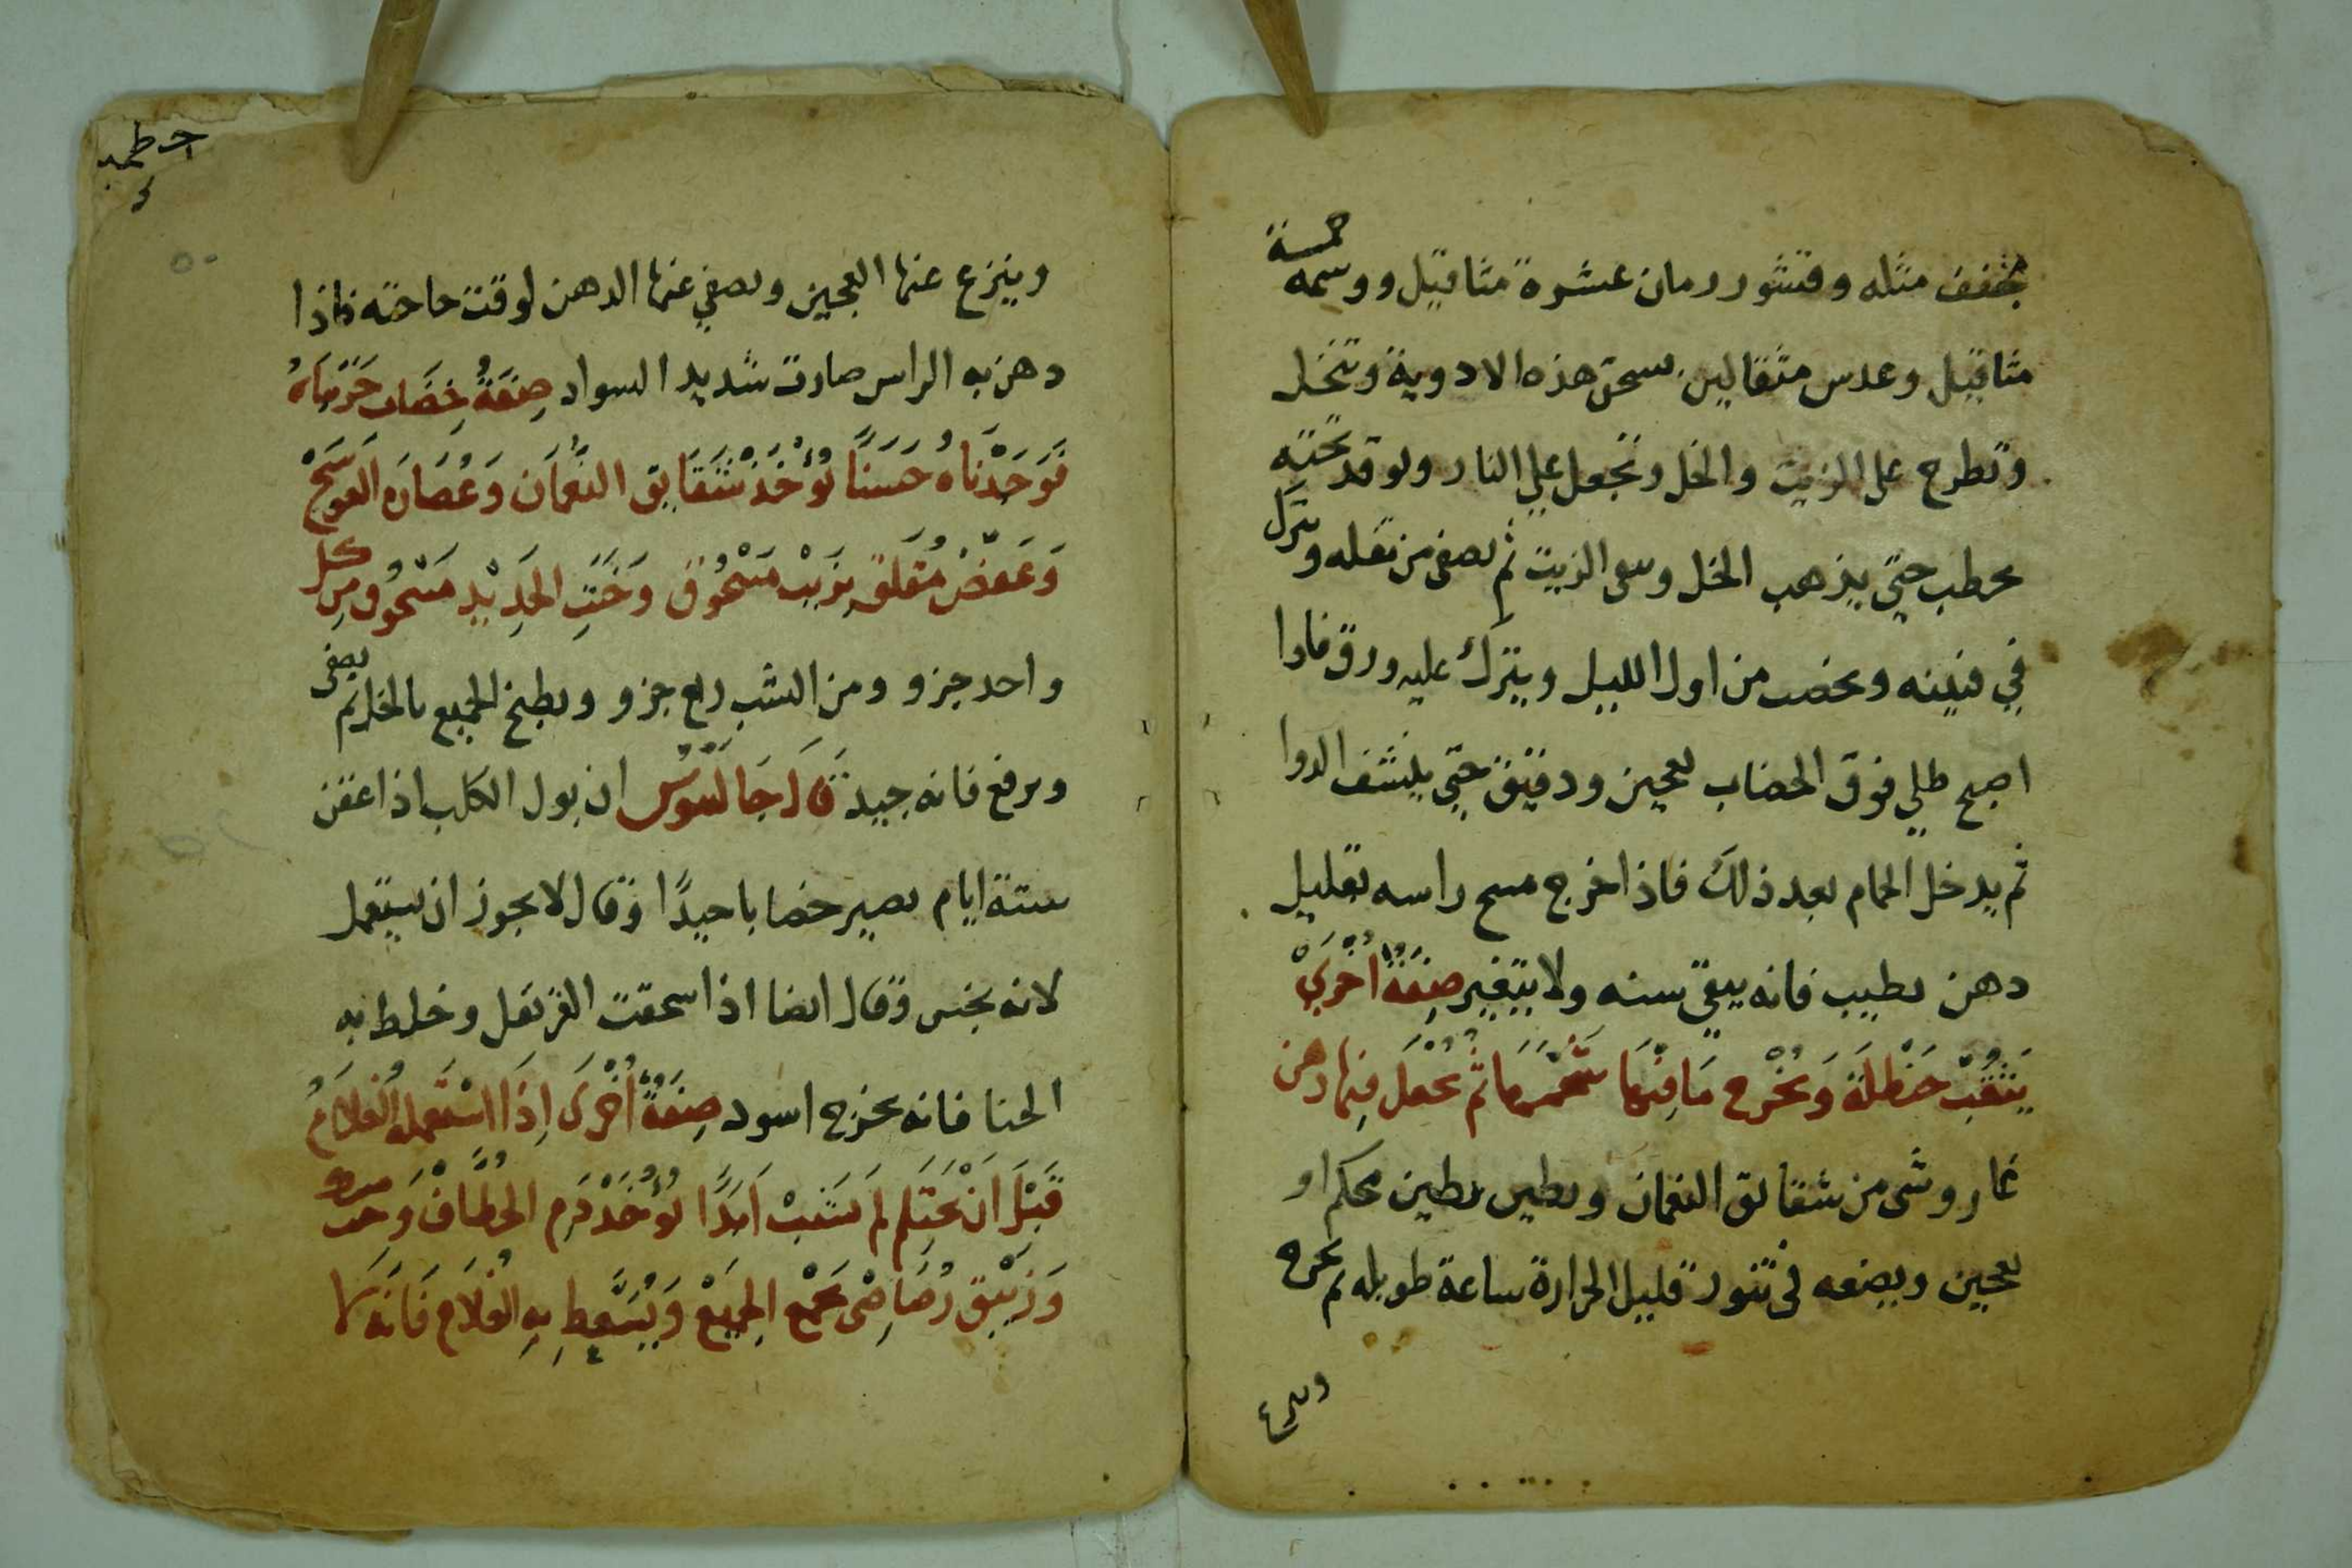 مجفف مثله وقشور رمان عشرة مثاقيل ووسمه خمسة
مثاقيل وعدس مثقالين يسحق هذه الادوية وتنخل
وتطرح على الزيت والخل وتجعل علي النار ويوقد تحته
بحطب حتي يذهب الخل ويبقى الزيت ثم يصفى من ثفله ويترك
في قنينه ويخضب من اول الليل ويترك عليه ورق فاذا
اصبح طلي فوق الخضاب بعجين ودقيق حتي ينشف الدوا
ثم يدخل الحمام بعد ذلك فاذا خرج مسح راسه بقليل
دهن بطيب فانه يبقي سنه ولا يتغير صِفَةٌ اُخْرَيْ
يَثْقُبْ حَنْظَلَةً وَيُخْرِج مَا فِيْهَا شَحْمَهَا ثُمَّ يُجْعَل فِيها دهن
غار وشى من شقايق النعمان ويطين بطين محكم او
بعجين ويضعه في تنور قليل الحرارة ساعة طويله ثم يخرج
وينزع
وينزع عنها العجين ويصفي عنها الدهن لوقت حاجته فاذا
دهن به الراس صارت شديد السواد صِفَةُ خِضَاب جَرَّبْنَاهُ
فَوَجَدْنَاهُ حَسَنًا يُؤْخَذ شَقَايق النُّعْمَان وَعُصَارَه العَوسَجْ
وَعَفْصْ مُقَلّى بِزَيْت مَسْحُوق وَخَبَثِ الحَدِيْدِ مَسْحُوق مِن كل
واحد جزو ومن الشب ربع جزو ويطبخ الجميع بالخل ثم يصفى
ويرفع فانه جيد قَالَ جَالَيْنُوسُ ان بول الكلب اذا عفن
ستة ايام يصير خضابا جيدًا وقال لا يجوز ان يستعمل
لانه نجس وقال ايضا اذا سحقت القرنفل وخلط به
الحنا فانه يخرج اسود صِفَةٌ اُخْرَى اِذَا اسْتَعْمَلَهُ الغُلَامُ
قَبْلَ اَنْ يَحْتَلِم لَمْ يَشِبْ اَبَدًا يُؤْخَذ دَمِ الخُطَّافْ وَ
وَزَيْبَق رُصَاصِى يجمع الجَمِيْعْ وَيُسَعَّط بِهِ الغُلَام فَانَه